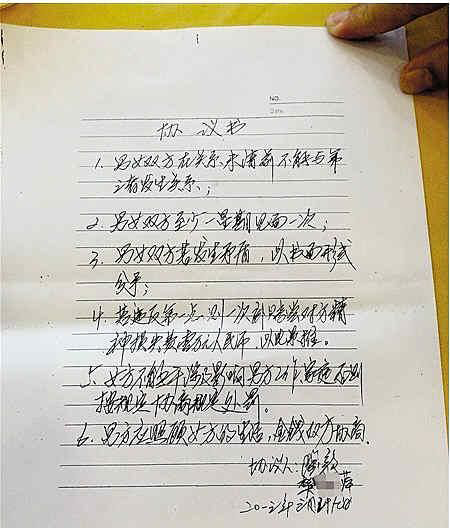 NO.
Date
协议书
1. 男女双方在关系未清前不能与第
三者发生关系;
2. 男女双方至少一星期见面一次;
3. 男女双方若发生矛盾,以书面形式
分手;
4. 若违反第一点,则一次就赔偿对方精
神损失费壹万元人民币,以此类推。
5. 女方不能干涉及影响男方工作家庭否则
按规定协商规定处罚。
6. 男方应照顾女方的生活,金钱双方协商.
协议人:
樊 萍